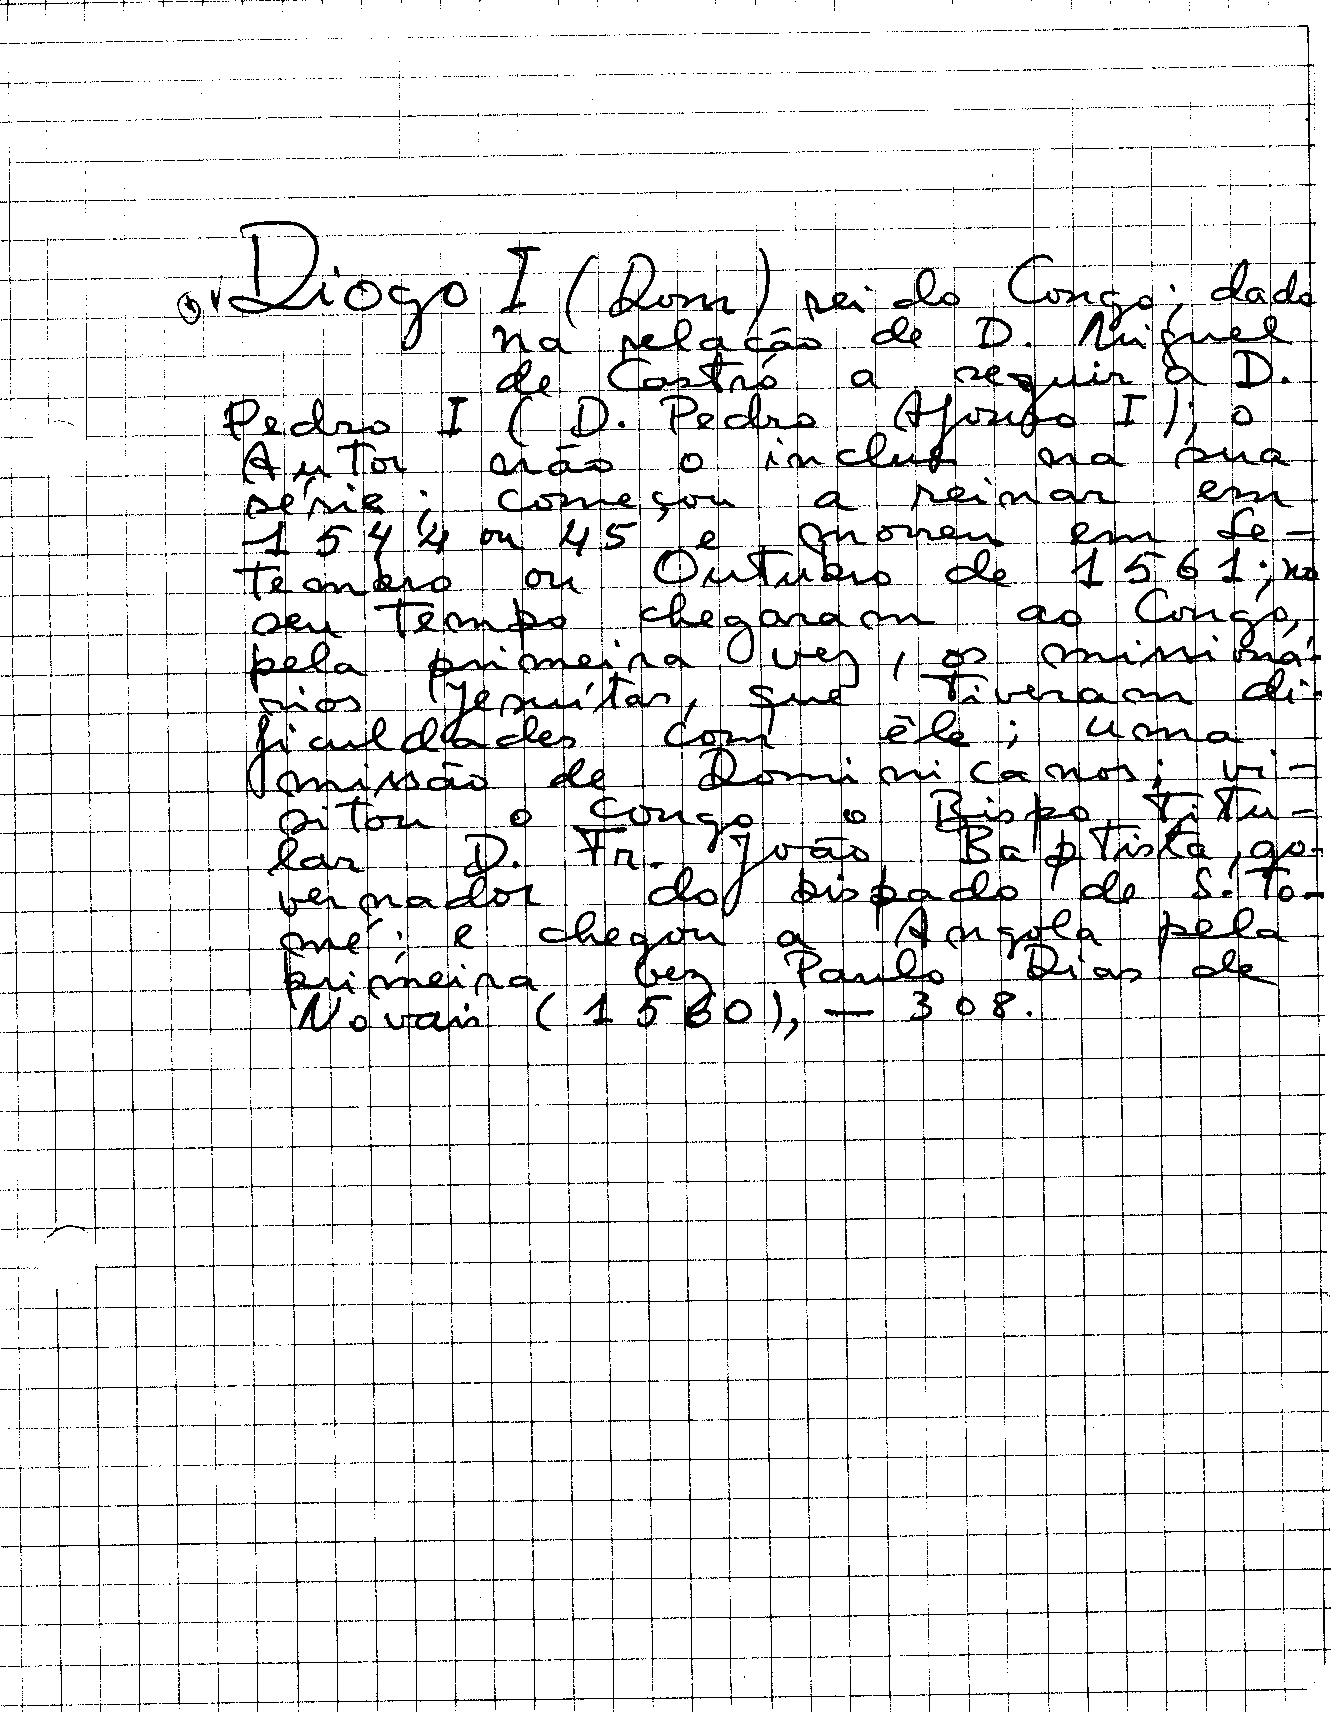 Diogo I (Dom) rei do Congo; dado
na relacão de D. Miguel
de Castro a seguir a D.
Pedro I (D. Pedro Afonso I); o
Autor não o inclue na sua
série; começou a reinar em
1544 ou 45 e morreu em Se-
tembro ou Outubro de 1561; no
seu tempo chegaram ao Congo,
pela primeira vez, os missioná-
rios Jesuítas, que tiveram di-
ficuldades com êle; uma
missão de Dominicanos; vi-
sitou o Congo o Bispo titu-
lar D. Fr. João Baptista, go-
vernador do bispado de S. To-
mé; e chegou a Angola pela
primeira vez Paulo Dias de
Novais (1560), — 308.